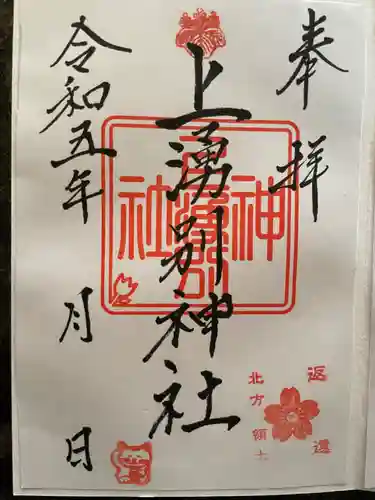 奉拝
上湧別神社
令和五年 月 日
神
社
返還
北方領土